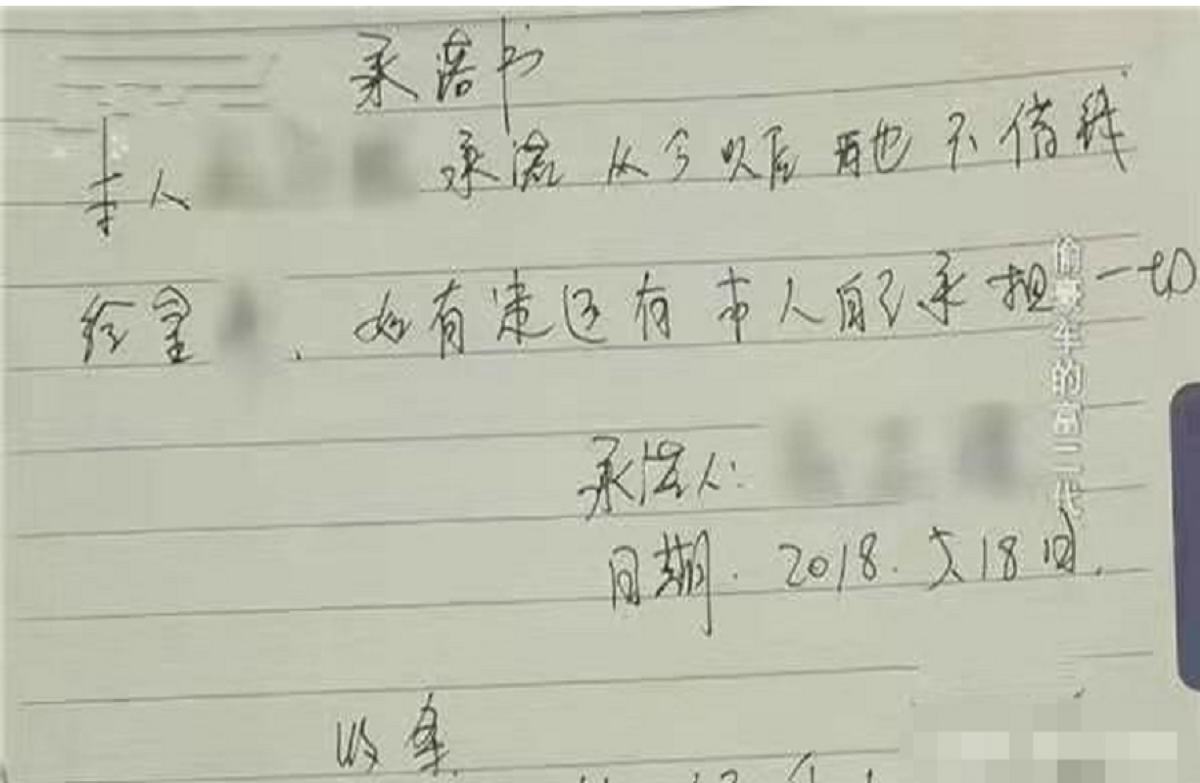 承诺书
本人 承诺从今以后再也不借钱
给金 、如有律还有本人自己承担一切
承诺人:
日期. 2018. 5.18日.
收条
偷豪车的富二代